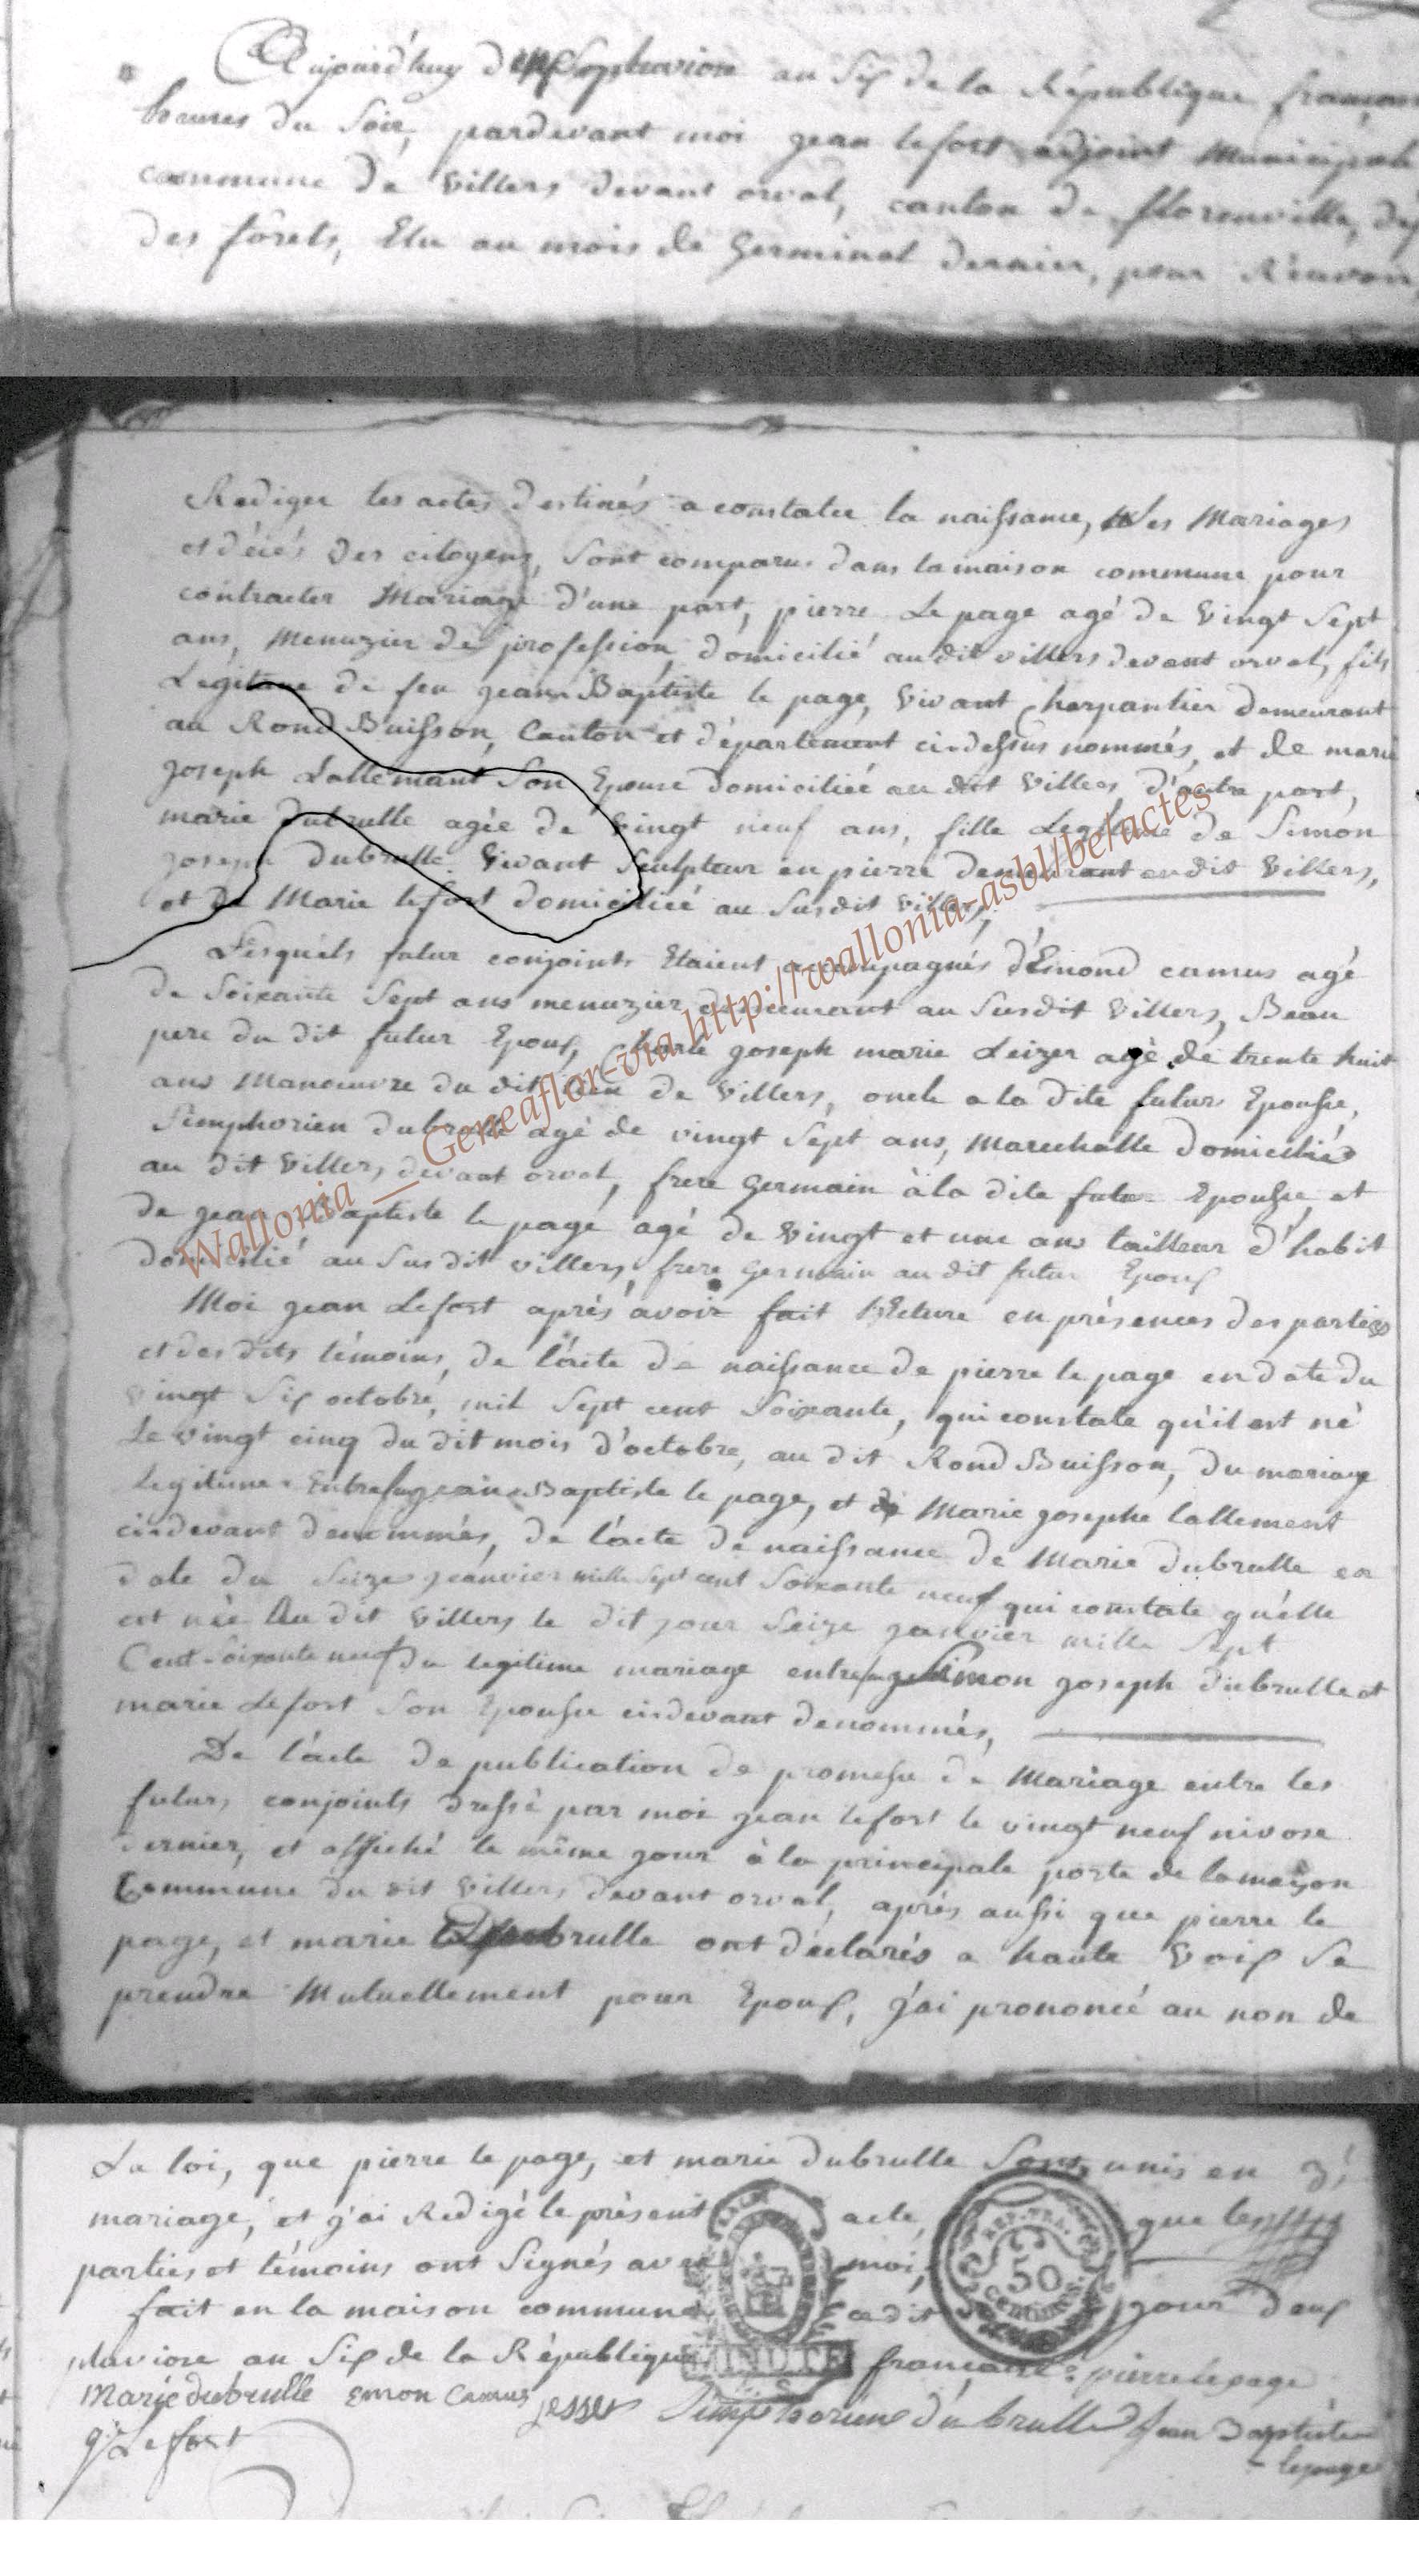 Aujourd'huy deux pluviose au Six de la République françoise
heures du Soir, pardevant moi jean lefort adjoint Municipal
commune de Villers devant orval, canton de florenville, dép
des forêts, Elu au mois de Germinal dernier, pour Recevoir
Rediger les actes destinés a constater la naissance, les Mariages
et décés des citoyens, Sont comparus dans la maison commune pour
contracter Mariage d'une part, pierre Le page agé de Vingt Sept
ans, Menuzier de profession, domicilié audit villers devant orval, fils
Légitime de feu jean Baptiste le page, Vivant Charpantier demeurant
au Rond Buisson, Canton et département cidessus nommés, et de marie
joseph Lallemant Son Epouse domiciliée au dit Villers, d'autre part,
marie dubrulle agée de Vingt neuf ans, fille Legitime de Simon
joseph dubrulle Vivant Sculpteur en pierre demeurant audit Villers,
et de Marie lefort domiciliée au Susdit Villers,
Lesquels futur conjoints Etaient accompagnés d'Emond camus agé
de Soixante Sept ans menuzier demeurant au Susdit Villers, Beau
pere du dit futur Epoux, Charle joseph marie Leizer agé de trente huit
ans Manoeuvre du dit lieu de Villers, oncle a la dite future Epousse,
Simphorien dubrulle agé de vingt Sept ans, Marechalle domicilié
au dit Villers devant orval, frere Germain à la dite future Epousse, et
de jean Baptiste le page agé de Vingt et une ans tailleur d'habit
domicilié au Susdit villers, frere germain au dit futur Epoux
Moi jean Lefort aprés avoir fait lecture en présences des parties
et des dits témoins, de l'acte de naissance de pierre le page en date du
vingt Six octobre, mil Sept cent Soixante, qui constate qu'il est né
Le vingt cinq du dit mois d'octobre, au dit Rond Buisson, du mariage
Legitime Entre feu jean Baptiste le page, et de Marie josephe lallement
cidevant denommés, de l'acte de naissance de Marie dubrulle en
date du Seize jeanvier mille Sept cent Soixante neuf qui constate qu'elle
est née Au dit Villers le dit jour Seize janvier mille Sept
Cent Soixante neuf du legitime mariage entre feu Simon joseph dubrulle et
marie Lefort Son Epousse cidevant denommés,
De l'acte de publication de promesse de Mariage entre les
futurs conjoints dressé par moi jean lefort le vingt neuf nivose
dernier, et affiché le même jour à la principale porte de la maison
Commune du dit Villers devant orval, aprés aussi que pierre le
page, et marie Dubrulle ont déclarés a haute Voix Se
prendre Mutuellement pour Epoux, j'ai prononcé au non de
La loi, que pierre le page, et marie dubrulle Sont unis en
mariage, et j'ai Redigé le présent acte, que les
parties et témoins ont Signés avec moi,
fait en la maison commune cedit jour deux
pluviose au Six de la République françoise pierre lepage
Marie dubrulle Emon Camus Simphorien du brulle Jean Baptiste
lepage
j Lefort
REP. FRA.
50
Centimes
MINUTE
Wallonia _ Geneaflor-via http://wallonia-asbl/be/actes